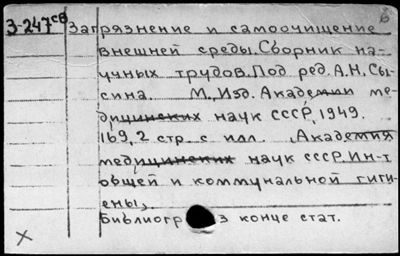 З-247св Загрязнение и самоочищение
внешней среды. Сборник на-
учных трудов. Под ред. А.Н. Сы-
сина. М., Изд. Академии ме-
дицинских наук СССР, 1949.
169,2 стр. с илл. Академия
медицинских наук СССР. Ин-т
общей и коммунальной гиги-
ены,
Библиогр в конце стат.